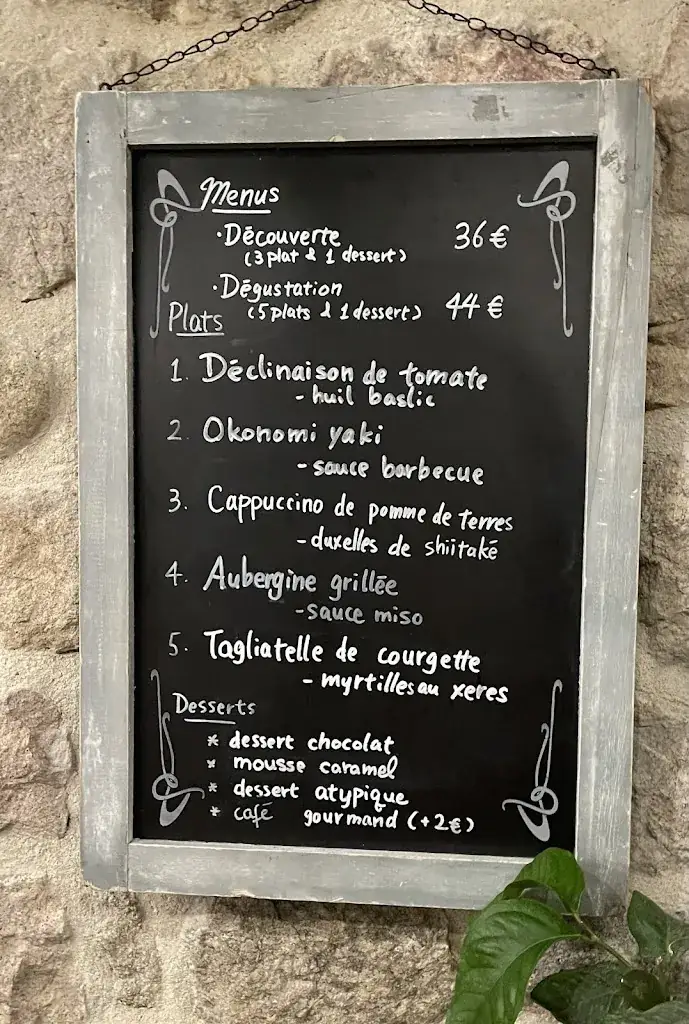 Menus
· Découverte 36 €
(3 plat & 1 dessert)
· Dégustation
(5 plats & 1 dessert) 44 €
Plats
1. Déclinaison de tomate
- huil baslic
2. Okonomi yaki
- sauce barbecue
3. Cappuccino de pomme de terres
- duxelles de shiitaké
4. Aubergine grillée
- sauce miso
5. Tagliatelle de courgette
- myrtilles au xeres
Desserts
* dessert chocolat
* mousse caramel
* dessert atypique
* café gourmand (+2€)